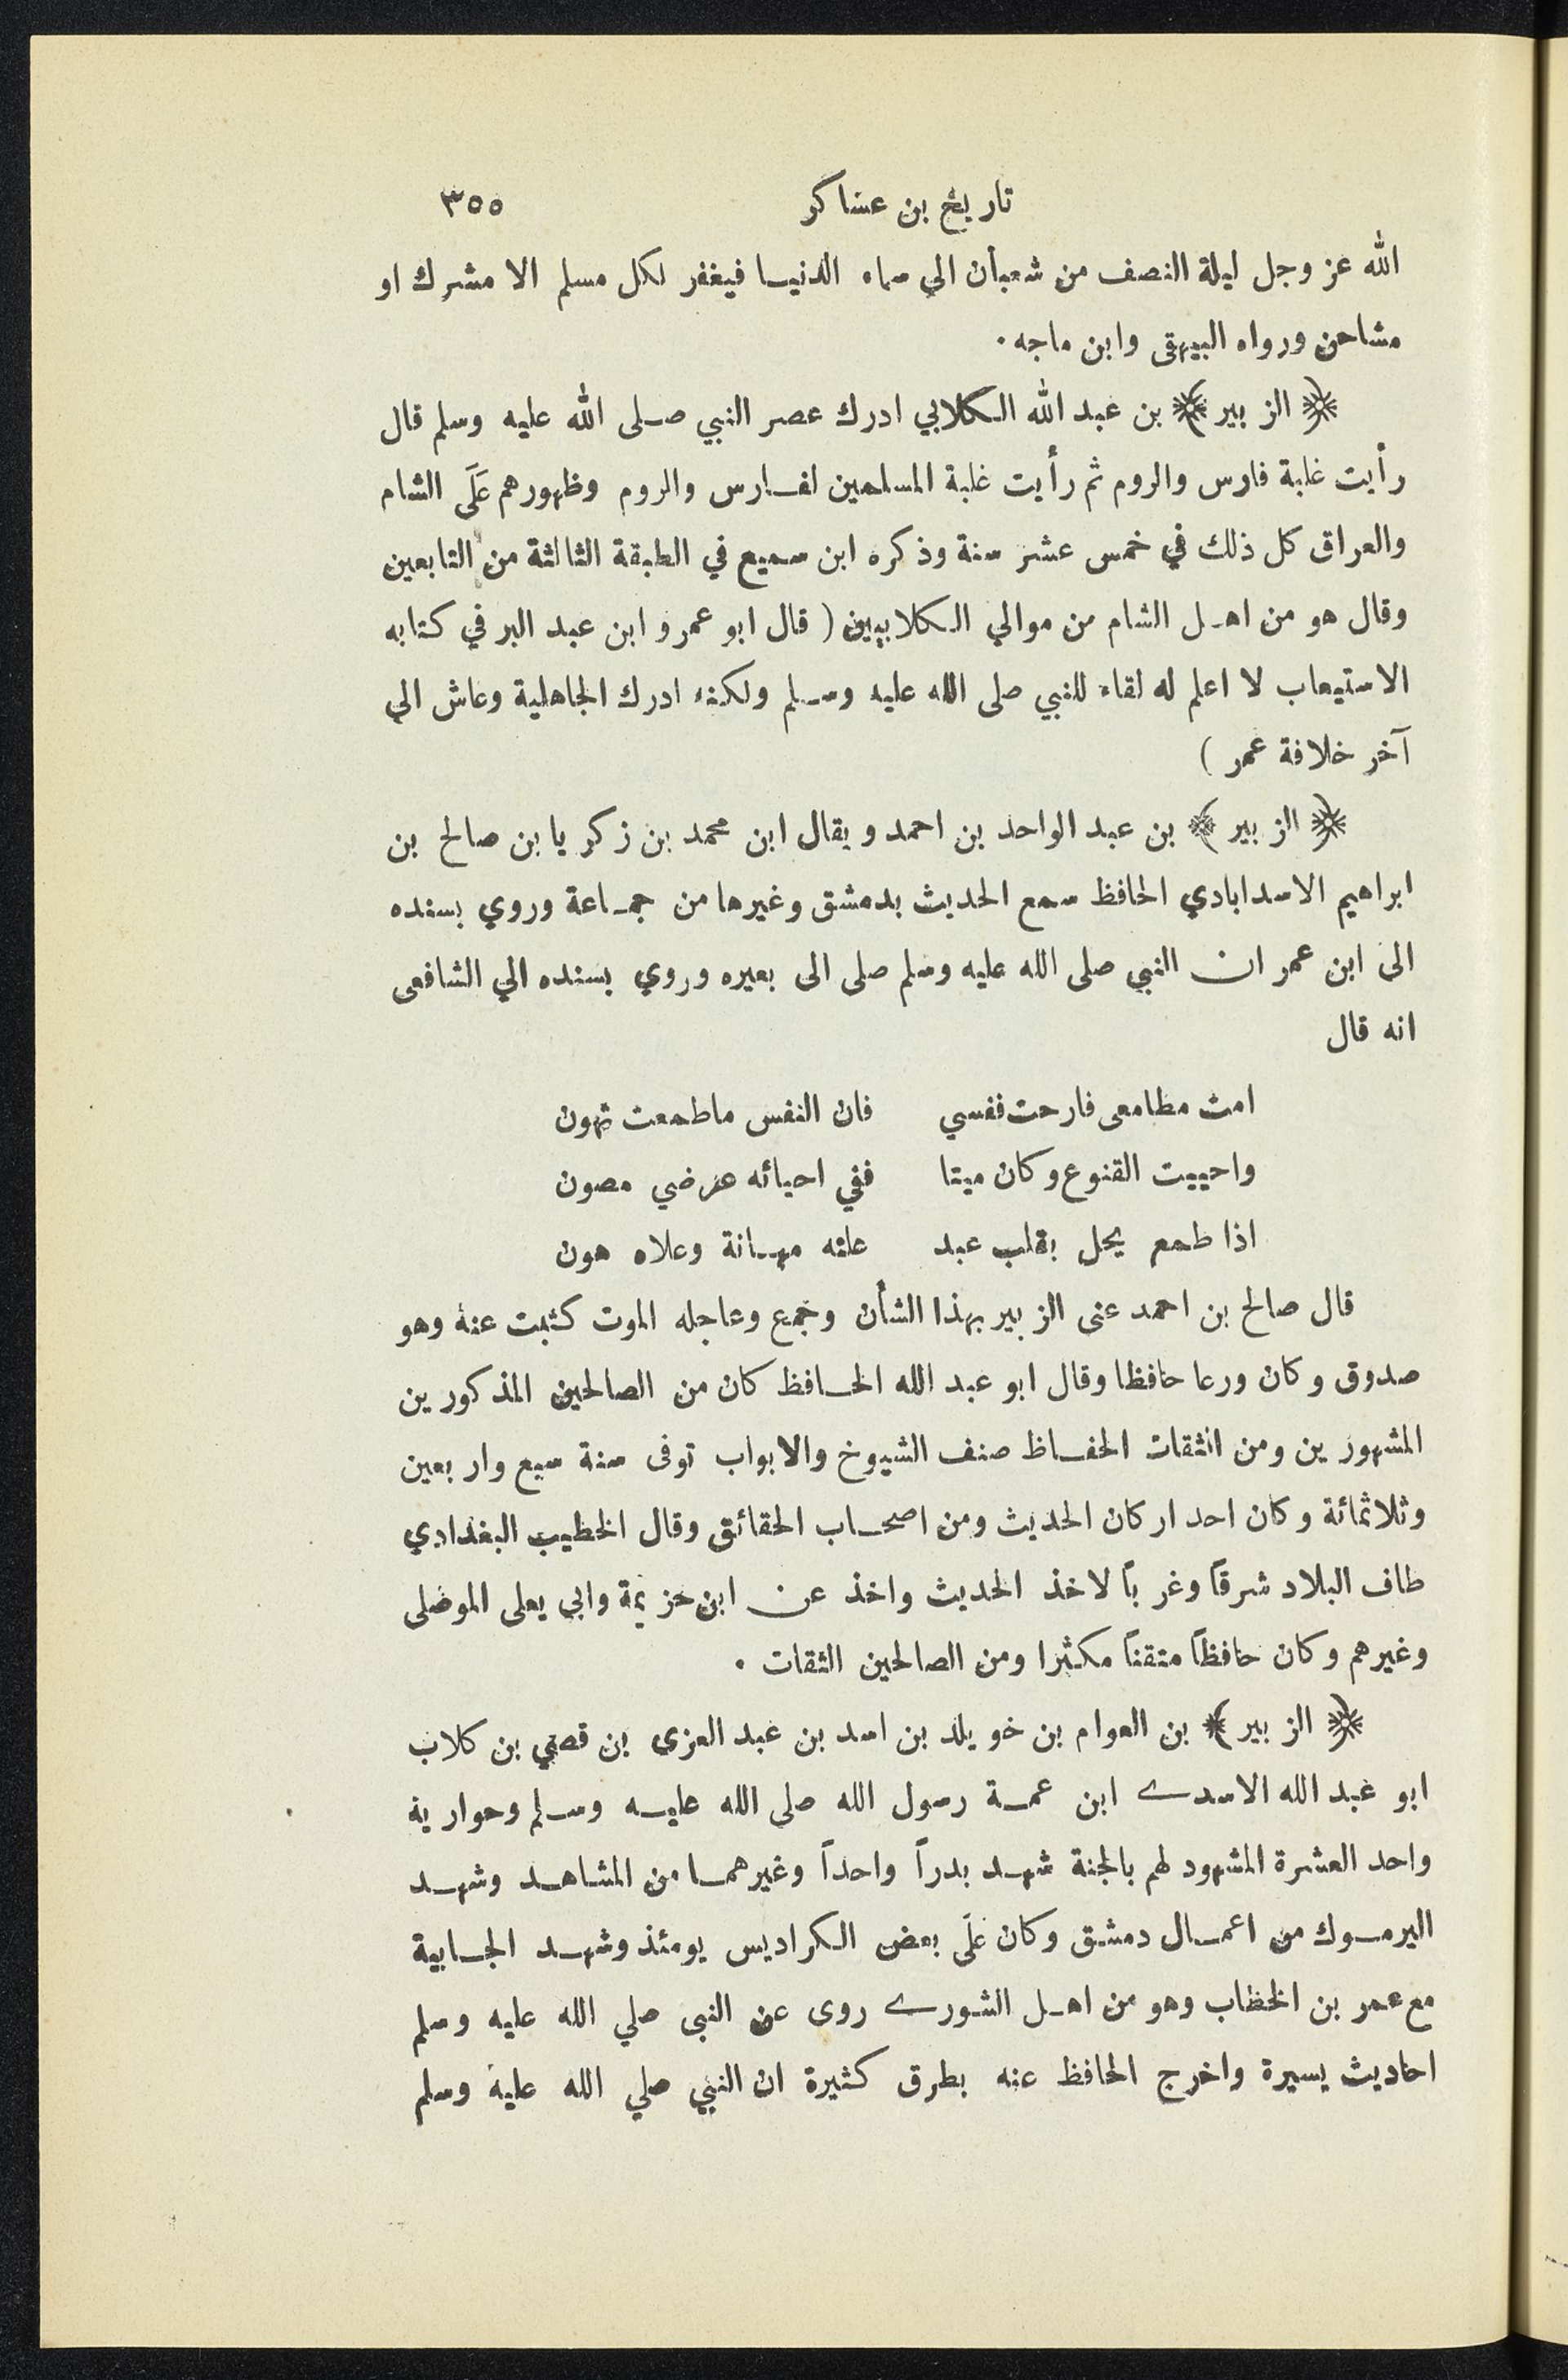 تاريخ بن عساكر ٣٥٥
الله عز وجل ليلة النصف من شعبان الى سماء الدنيا فيغفر لكل مسلم الا مشرك او
مشاحن ورواه البيهقى وابن ماجه .
﴿ الزبير ﴾ بن عبد الله الكلابي ادرك عصر النبي صلى الله عليه وسلم قال
رأيت غلبة فارس والروم ثم رأيت غلبة المسلمين لفارس والروم وظهورهم عَلَى الشام
والعراق كل ذلك في خمس عشر سنة وذكره ابن سميع في الطبقة الثالثة من التابعين
وقال هو من اهل الشام من موالي الكلابيين ( قال ابو عمر و ابن عبد البر في كتابه
الاستيعاب لا اعلم له لقاء للنبي صلى الله عليه وسلم ولكنه ادرك الجاهلية وعاش الى
آخر خلافة عمر )
﴿ الزبير ﴾ بن عبد الواحد بن احمد ويقال ابن محمد بن زكريا بن صالح بن
ابراهيم الاسدابادي الحافظ سمع الحديث بدمشق وغيرها من جماعة وروي بسنده
الى ابن عمر ان النبي صلى الله عليه وسلم صلى الى بعيره وروي بسنده الي الشافعى
انه قال
امت مطامعى فارحت نفسي فان النفس ماطمعت تهون
واحييت القنوع وكان ميتا ففي احيائه عرضي مصون
اذا طمع يحل بقلب عبد علته مهانة وعلاه هون
قال صالح بن احمد عنى الزبير بهذا الشأن وجمع وعاجله الموت كتبت عنه وهو
صدوق وكان ورعا حافظا وقال ابو عبد الله الحافظ كان من الصالحين المذكورين
المشهورين ومن الثقات الحفاظ صنف الشيوخ والابواب توفى سنة سبع واربعين
وثلاثمائة وكان احد اركان الحديث ومن اصحاب الحقائق وقال الخطيب البغدادي
طاف البلاد شرقاً وغرباً لاخذ الحديث واخذ عن ابن خزيمة وابي يعلى الموصلى
وغيرهم وكان حافظاً متقناً مكثرا ومن الصالحين الثقات .
﴿ الزبير ﴾ بن العوام بن خويلد بن اسد بن عبد العزى بن قصي بن كلاب
ابو عبد الله الاسدے ابن عمة رسول الله صلى الله عليه وسلم وحواريه
واحد العشرة المشهود لهم بالجنة شهد بدراً واحداً وغيرهما من المشاهد وشهد
اليرموك من اعمال دمشق وكان عَلَى بعض الكراديس يومئذ وشهد الجابية
مع عمر بن الخطاب وهو من اهل الشورے روى عن النبى صلي الله عليه وسلم
احاديث يسيرة واخرج الحافظ عنه بطرق كثيرة ان النبي صلي الله عليه وسلم